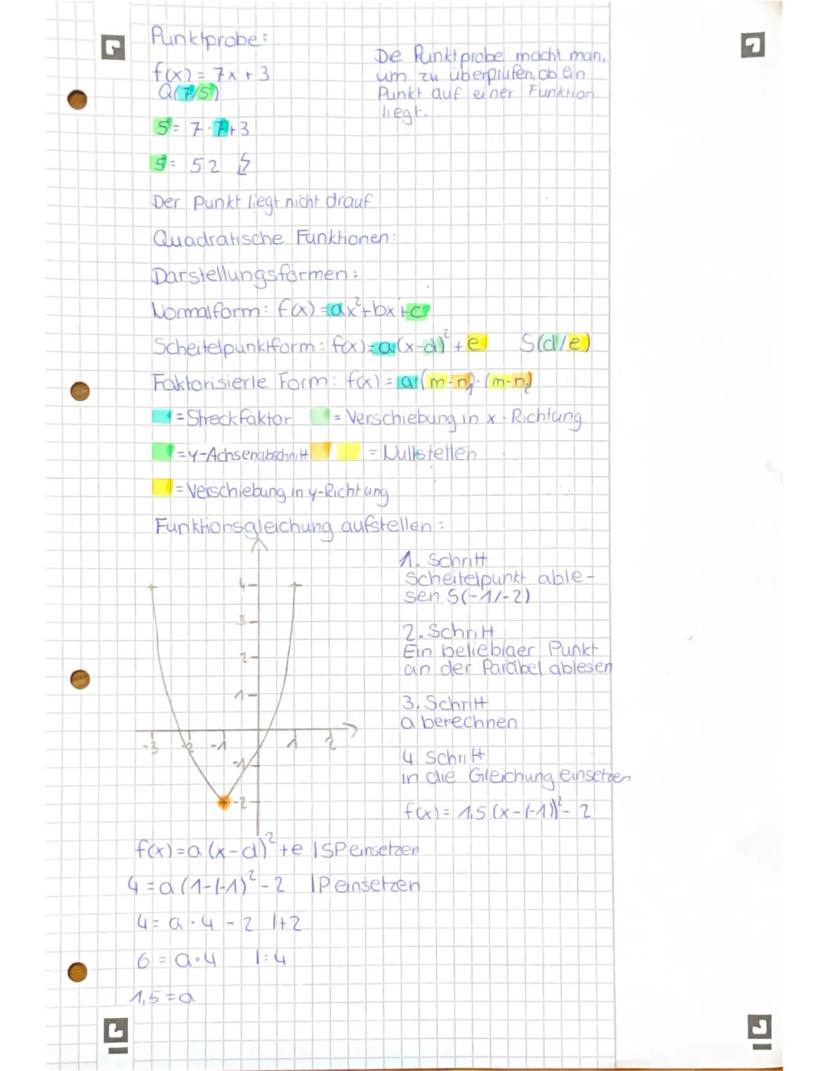 Punktprobe:
f(x) = 7x + 3
Q(7/5)
5 = 7·7+3
5 = 52 ↯
Die Punktprobe macht man,
um zu überprüfen, ob ein
Punkt auf einer Funktion
liegt.
Der Punkt liegt nicht drauf
Quadratische Funktionen:
Darstellungsformen:
Normalform: f(x) = ax²+bx+c
Scheitelpunktform: f(x) = a(x-d)² + e S(d/e)
Faktorisierte Form: f(x) = a(m-n₁)·(m-n₂)
= Streckfaktor = Verschiebung in x-Richtung
= y-Achsenabschnitt = Nullstellen
= Verschiebung in y-Richtung
Funktionsgleichung aufstellen:
4
3
2
1
-3 -2 -1 1 2
-1
-2
1. Schritt
Scheitelpunkt able-
sen S(-1/-2)
2. Schritt
Ein beliebiger Punkt
an der Parabel ablesen
3. Schritt
a berechnen
4 Schritt
in die Gleichung einsetzen
f(x) = 1,5 (x-(-1))² - 2
f(x) = a (x-d)² + e | SP einsetzen
4 = a (1-(-1)² - 2 | P einsetzen
4 = a · 4 - 2 | +2
6 = a · 4 | : 4
1,5 = a